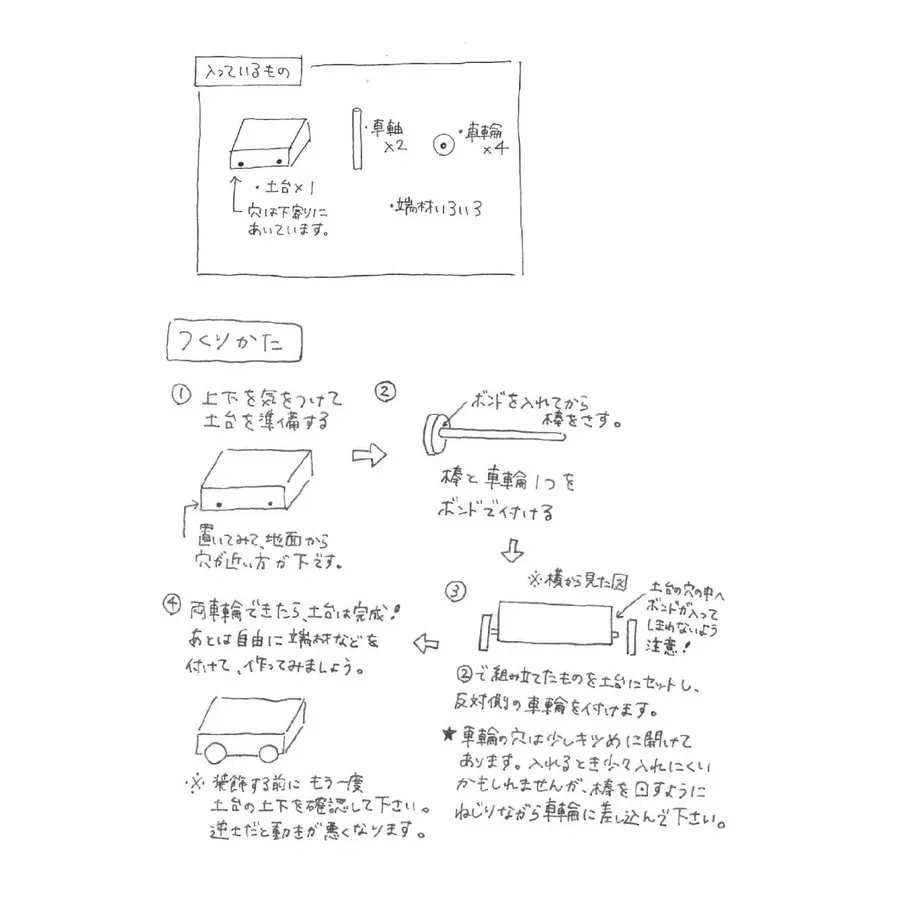 入っているもの
・車軸
×2
・車輪
×4
・土台×1
穴は下寄りに
あいています。
・端材いろいろ
つくりかた
① 上下を気をつけて
土台を準備する
置いてみて、地面から
穴が近い方が下です。
②
ボンドを入れてから
棒をさす。
棒と車輪1つを
ボンドで付ける
③
※横から見た図
土台の穴の中へ
ボンドが入って
しまわないよう
注意!
②で組み立てたものを土台にセットし、
反対側の車輪を付けます。
★車輪の穴は少しキツめに開けて
あります。入れるとき少々入れにくい
かもしれませんが、棒を回すように
ねじりながら車輪に差し込んで下さい。
④ 両車輪できたら、土台は完成!
あとは自由に端材などを
付けて、作ってみましょう。
※ 装飾する前に もう一度
土台の上下を確認して下さい。
逆さだと動きが悪くなります。